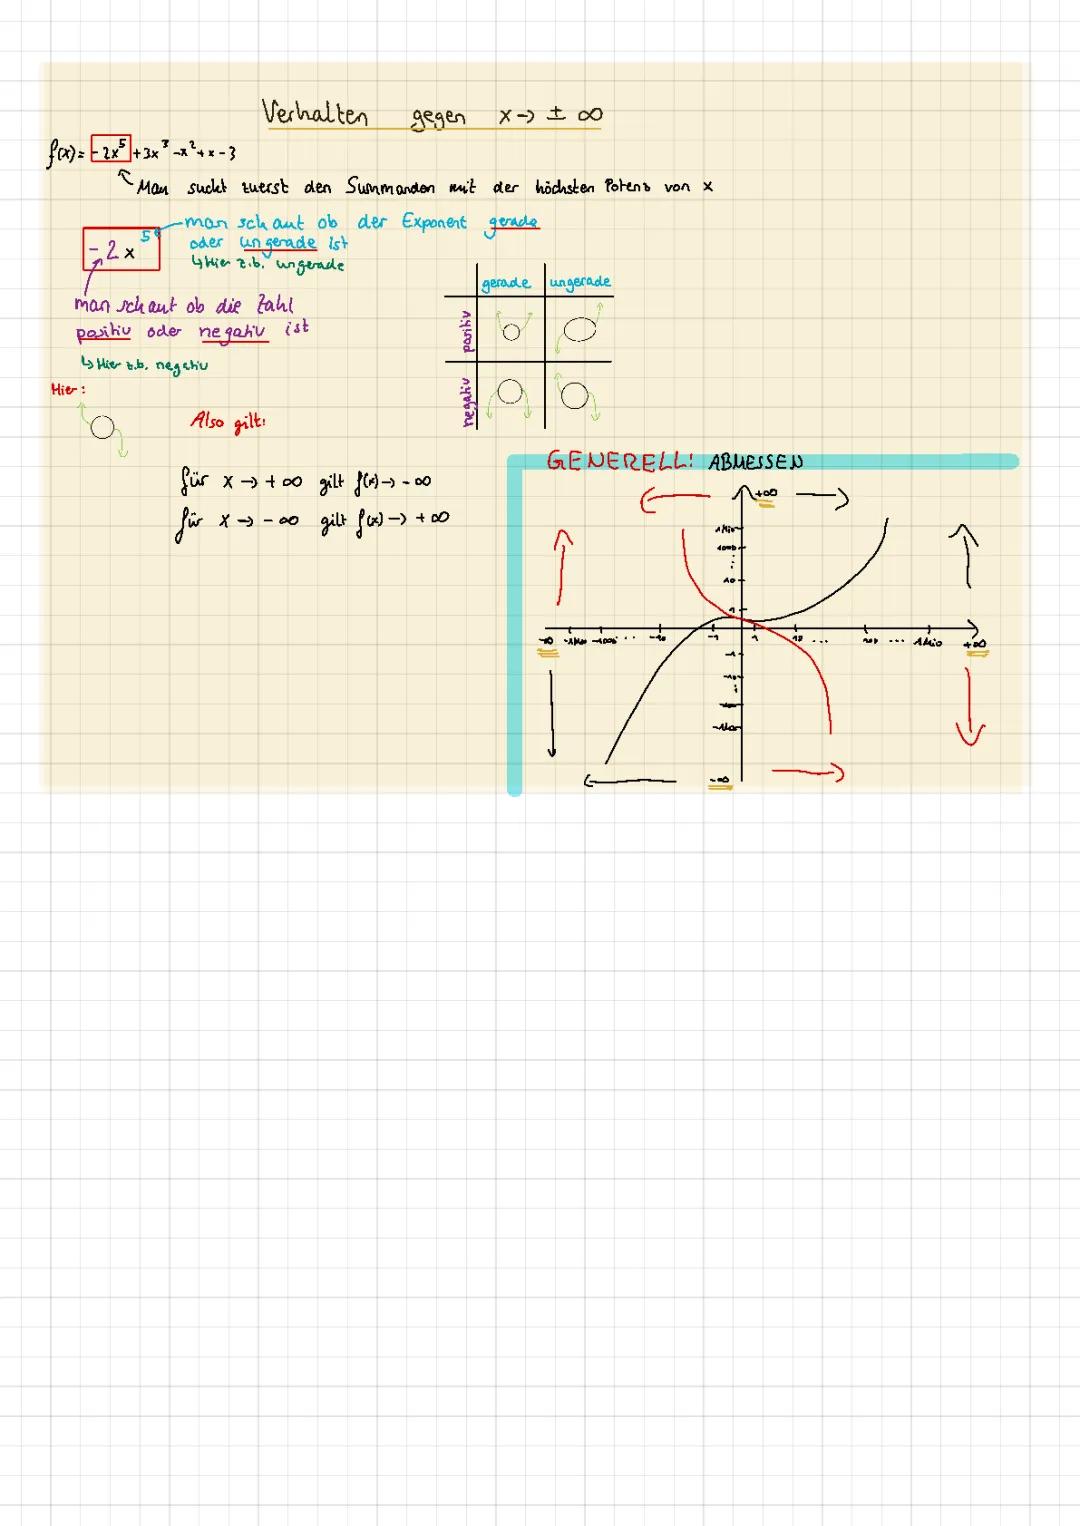 Verhalten gegen x→ ± ∞
f(x)= -2x⁵ +3x³ -x² +x -3
Man sucht zuerst den Summanden mit der höchsten Potenz von x
man schaut ob der Exponent gerade
oder ungerade ist
↳Hier z.b. ungerade
-2 x⁵
man schaut ob die Zahl
positiv oder negativ ist
↳Hier z.b. negativ
gerade ungerade
positiv
negativ
Hier:
Also gilt:
für x → +∞ gilt f(x)→ -∞
für x → -∞ gilt f(x)→ +∞
GENERELL! ABMESSEN
+∞
1 Mio
1000
10
1
-∞ -1Mio -1000 ... -10 -1 1 10 ... 100 ... 1 Mio +∞
-1
-10
-∞